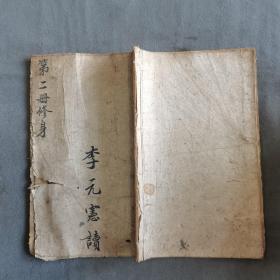 第二册修身
李元憲讀